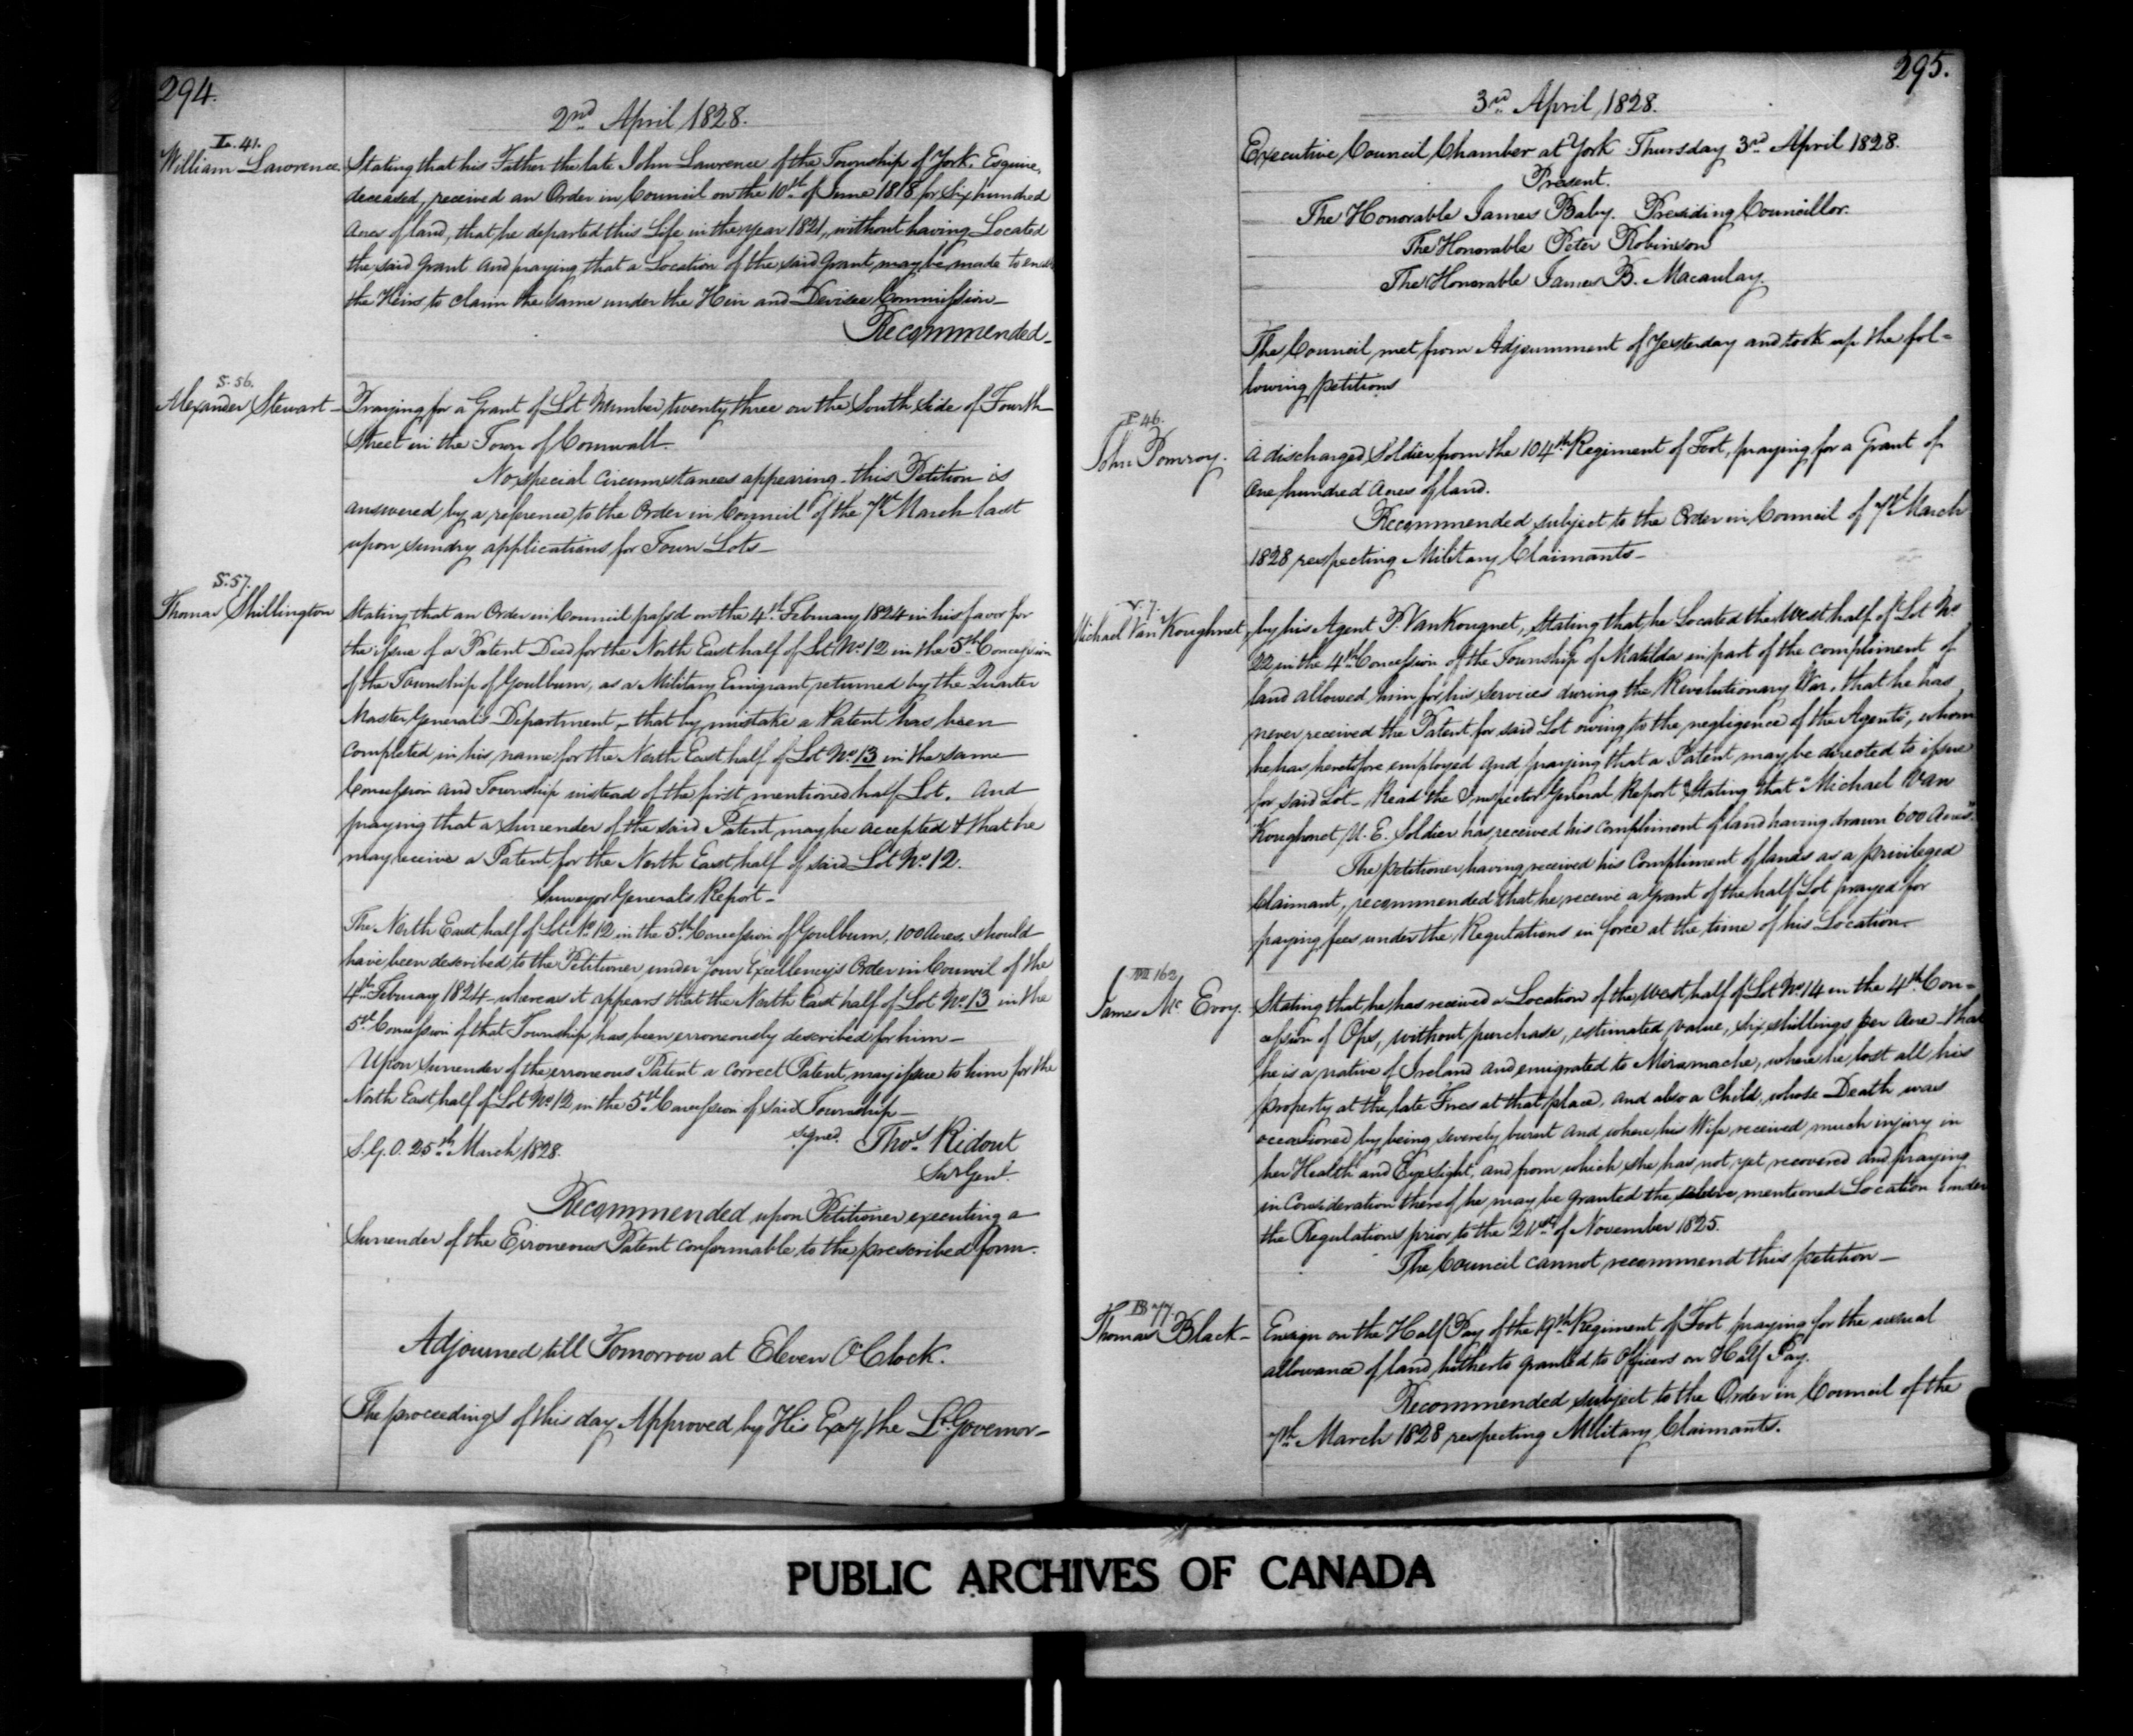 294.
2nd April 1828.
L. 41.
William Lawrence Stating that his Father the late John Lawrence of the Township of York, Esquire,
deceased, received an Order in Council on the 10th of June 1818 for Six hundred
Acres of land, that he departed this Life in the year 1821, without having Located
the said Grant and praying that a Location of the said Grant may be made to
the Heirs to claim the same under the Heir and Devisee Commission_
Recommended_
S. 56.
Alexander Stewart_ Praying for a Grant of Lot Number twenty three on the South side of Fourth
Street in the Town of Cornwall.
No special Circumstances appearing this Petition is
answered by a reference to the Order in Council of the 7th March last
upon sundry applications for Town Lots_
S. 57.
Thomas Shillington Stating that an Order in Council pass'd on the 4th February 1824 in his favor for
the issue of a Patent Deed for the North East half of Lot No. 12 in the 5th Concession
of the Township of Goulburn, as a Military Emigrant returned by the Quarter
Master General's Department, that by mistake a Patent has been
completed in his name for the North East half of Lot No. 13 in the same
Concession and Township instead of the first mentioned half Lot. And
praying that a Surrender of the said Patent may be accepted & that he
may receive a Patent for the North East half of said Lot No. 12.
Surveyor Generals Report_
The North East half of Lot No. 12 in the 5th Concession of Goulburn, 100 Acres, should
have been described to the Petitioner under Your Excellency's Order in Council of the
4th February 1824_ whereas it appears that the North East half of Lot No. 13 in the
5th Concession of that Township has been erroneously described for him_
Upon Surrender of the erroneous Patent a correct Patent may issue to him for the
North East half of Lot No. 12 in the 5th Concession of said Township_
S. G. O. 25th March 1828. signed. Thos. Ridout
Sur Genl.
Recommended upon Petitioner executing a
Surrender of the Erroneous Patent conformable to the prescribed form.
Adjourned till Tomorrow at Eleven O'Clock.
The proceedings of this day Approved by His Excy the Lt. Governor_
295.
3rd April 1828.
Executive Council Chamber at York Thursday 3rd April 1828.
Present.
The Honorable James Baby. Presiding Councillor.
The Honorable Peter Robinson
The Honorable James B. Macaulay.
The Council met from Adjournment of Yesterday and took up the fol=
lowing petitions
P 46.
John Pomroy. A discharged Soldier from the 104th Regiment of Foot, praying for a Grant of
One hundred Acres of land.
Recommended subject to the Order in Council of 7th March
1828 respecting Military Claimants_
V. 7.
Michael Van Koughnet, by his Agent P. VanKougnet, Stating that he Located the West half of Lot No.
22 in the 4th Concession of the Township of Matilda in part of the compliment of
land allowed him for his services during the Revolutionary War, that he has
never received the Patent for said Lot owing to the negligence of the Agents, whom
he has heretofore employed and praying that a Patent may be directed to issue
for said Lot_ Read the Inspector General Report Stating that "Michael Van
Koughnet U. E. Soldier has received his compliment of land having drawn 600 Acres".
The petitioner having received his Compliment of lands as a privileged
Claimant, recommended that he receive a Grant of the half Lot prayed for
paying fees under the Regulations in force at the time of his Location.
M 162
James Mc Evoy. Stating that he has received a Location of the West half of Lot No. 14 in the 4th Con=
cession of Ops, without purchase, estimated value, six shillings per Acre_ that
he is a native of Ireland and emigrated to Miramache, where he lost all his
property at the late Fires at that place, and also a Child, whose Death was
occasioned by being severely burnt and where his Wife received much injury in
her Health and Eye Sight, and from which she has not yet recovered and praying
in Consideration thereof he may be granted the above mentioned Location under
the Regulations prior to the 21st of November 1825.
The Council cannot recommend this petition_
B 77.
Thomas Black_ Ensign on the Half Pay of the 19th Regiment of Foot praying for the usual
allowance of land hitherto granted to Officers on Half Pay.
Recommended subject to the Order in Council of the
7th March 1828 respecting Military Claimants.
PUBLIC ARCHIVES OF CANADA